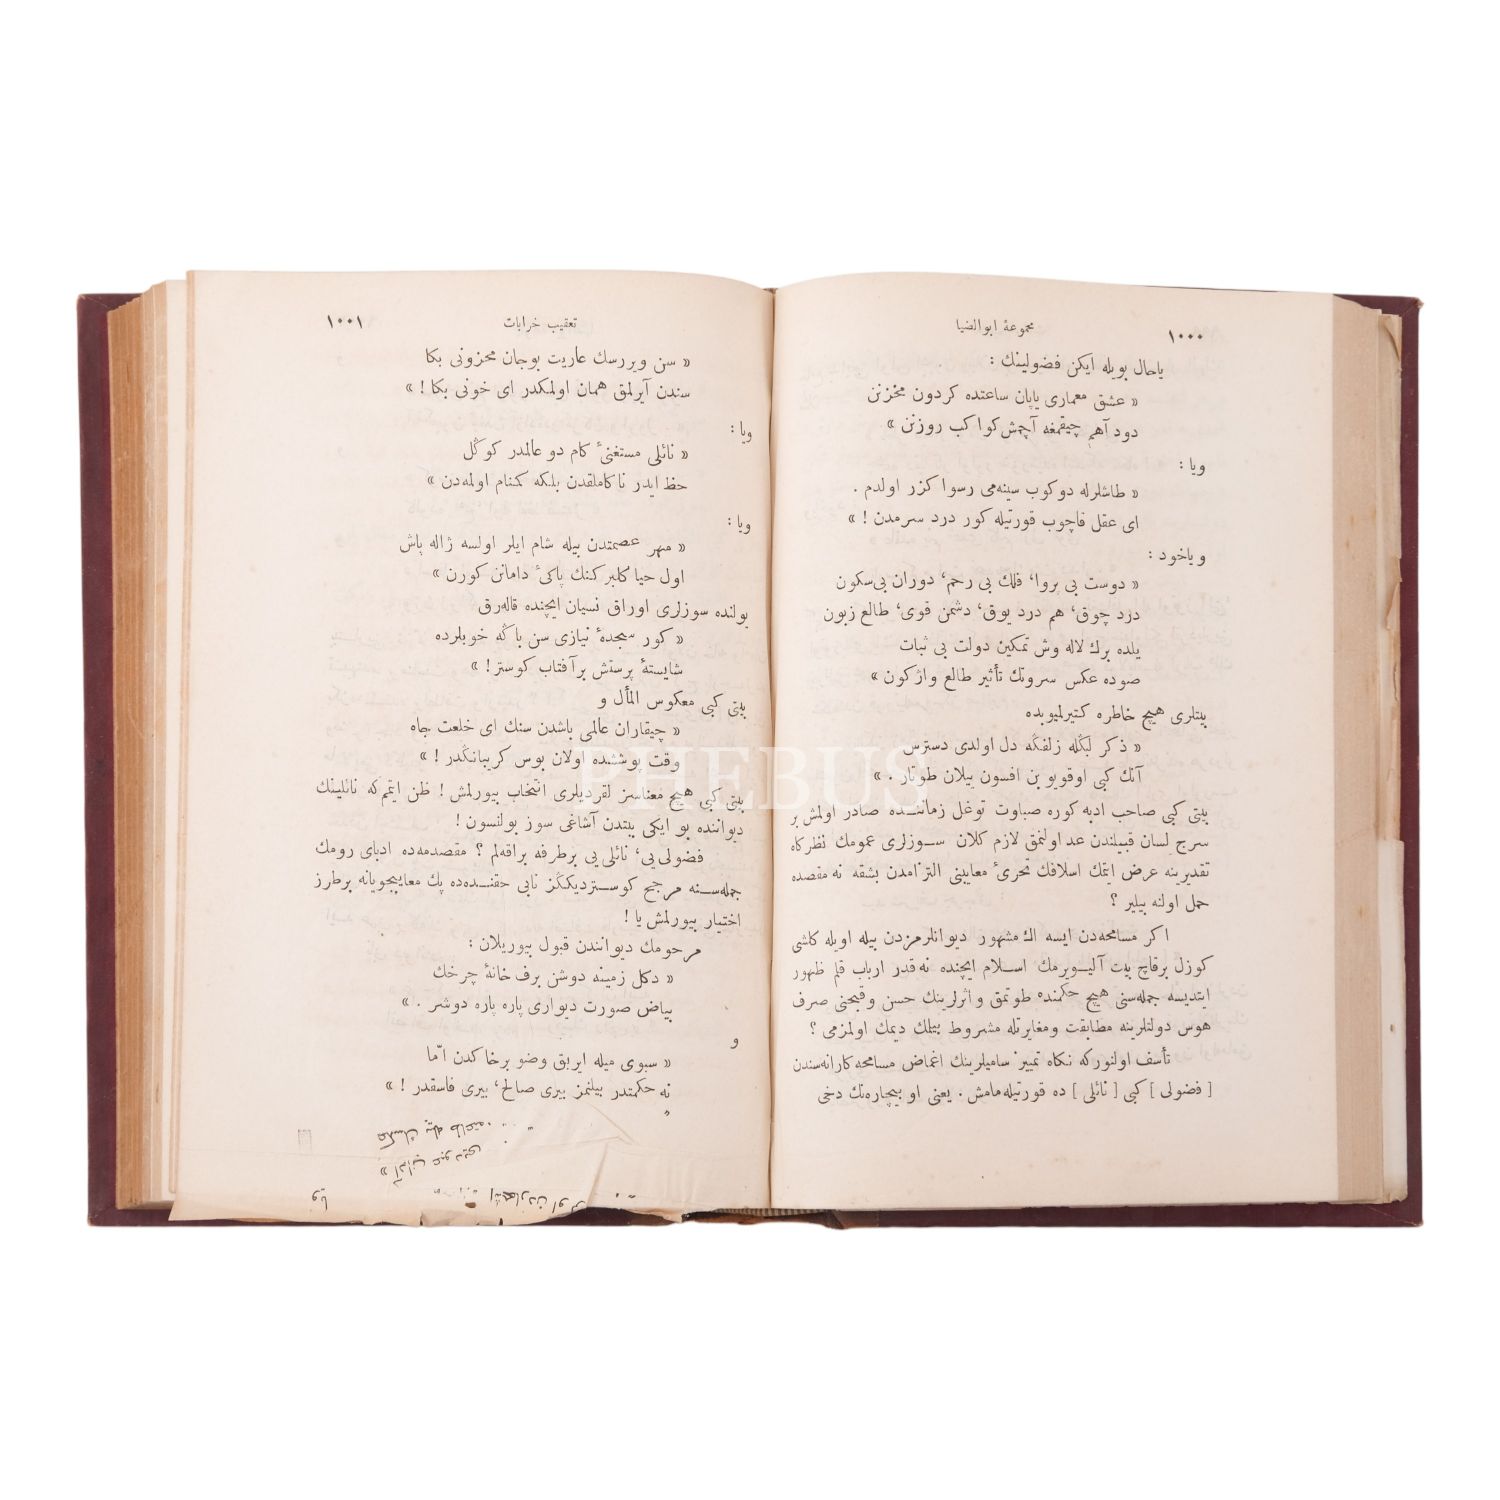 ١٠٠٠
مجموعهٔ ابوالضيا
ياحال بويله ايكن فضولينك :
« عشق معماری ياپان ساعتده كردون مخزنن
دود آهم چيقمغه آچمش كواكب روزنن »
ويا :
« طاشلرله دوكوب سينه‌می رسوا كزر اولدم .
ای عقل قاچوب قورتيله كور درد سرمدن ! »
وياخود :
« دوست بی پروا، فلك بی رحم، دوران بی‌سكون
درد چوق، هم درد يوق، دشمن قوی، طالع زبون
يلده برك لاله وش تمكين دولت بی ثبات
صوده عكس سروتك تأثير طالع واژكون »
بيتلری هيچ خاطره كتيرلميوبده
« ذكر لبڭله زلفڭه دل اولدی دسترس
آنك كبی اوقويوبن افسون ييلان طوتار . »
بيتی كبی صاحب ادبه كوره صباوت توغل زماننده صادر اولمش بر
سرج لسان قبيلندن عد اولنمق لازم كلان سوزلری عمومك نظركاه
تقديرينه عرض ايتمك اسلافك تحریٔ معايبنی التزامدن بشقه نه مقصده
حمل اولنه بيلير ؟
اكر مسامحه‌دن ايسه اك مشهور ديوانلرمزدن بيله اويله كلشی
كوزل برقاچ بيت آليويرمك اسلام ايچنده نه‌قدر ارباب قلم ظهور
ايتديسه جمله‌سنی هيچ حكمنده طوتمق و اثرلرينك حسن وقبحنی صرف
هوس دولتلرينه مطابقت ومغايرتله مشروط بيلمك ديمك اولمزمی ؟
تأسف اولنوركه نكاه تمييز ساميلرينك اغماض مسامحه كارانه‌سندن
[ فضولی ] كبی [ نائلی ] ده قورتيله‌مامش . يعنی او بيچاره‌نك دخی
تعقيب خرابات
١٠٠١
« سن ويررسك عاريت بوجان محزونی بكا
سندن آيرلمق همان اولمكدر ای خونی بكا ! »
ويا :
« نائلی مستغنیٔ كام دو عالمدر كوڭل
حظ ايدر ناكاملقدن بلكه كمنام اولمه‌دن »
ويا :
« مهر عصمتدن بيله شام ايلر اولسه ژاله پاش
اول حيا كلبركنك پاكیٔ دامانن كورن »
يولنده سوزلری اوراق نسيان ايچنده قاله‌رق
« كور سجدهٔ نيازی سن باڭه خوبلرده
شايستهٔ پرستش برآفتاب كوستر ! »
بيتی كبی معكوس المأل و
« چيقاران عالمی باشدن سنك ای خلعت جاه
وقت پوششده اولان بوس كريبانكدر ! »
بيتی كبی هيچ معناسز لقرديلری انتخاب بيورلمش ! ظن ايتمم‌كه نائلينك
ديواننده بو ايكی بيتدن آشاغی سوز بولنسون !
فضولی‌يی، نائلی يی برطرفه براقه‌لم ؟ مقصدمه‌ده ادبای رومك
جمله‌سنه مرجح كوسترديككز نابی حقنده‌ده پك معايبجويانه برطرز
اختيار بيورلمش يا !
مرحومك ديوانندن قبول بيوريلان :
« دكل زمينه دوشن برف خانهٔ چرخك
بياض صورت ديواری پاره پاره دوشر . »
و
« سبوی ميله ابريق وضو برخاكدن امّا
نه حكمتدر بيلنمز بيری صالح، بيری فاسقدر ! »
ويا
PHEBUS